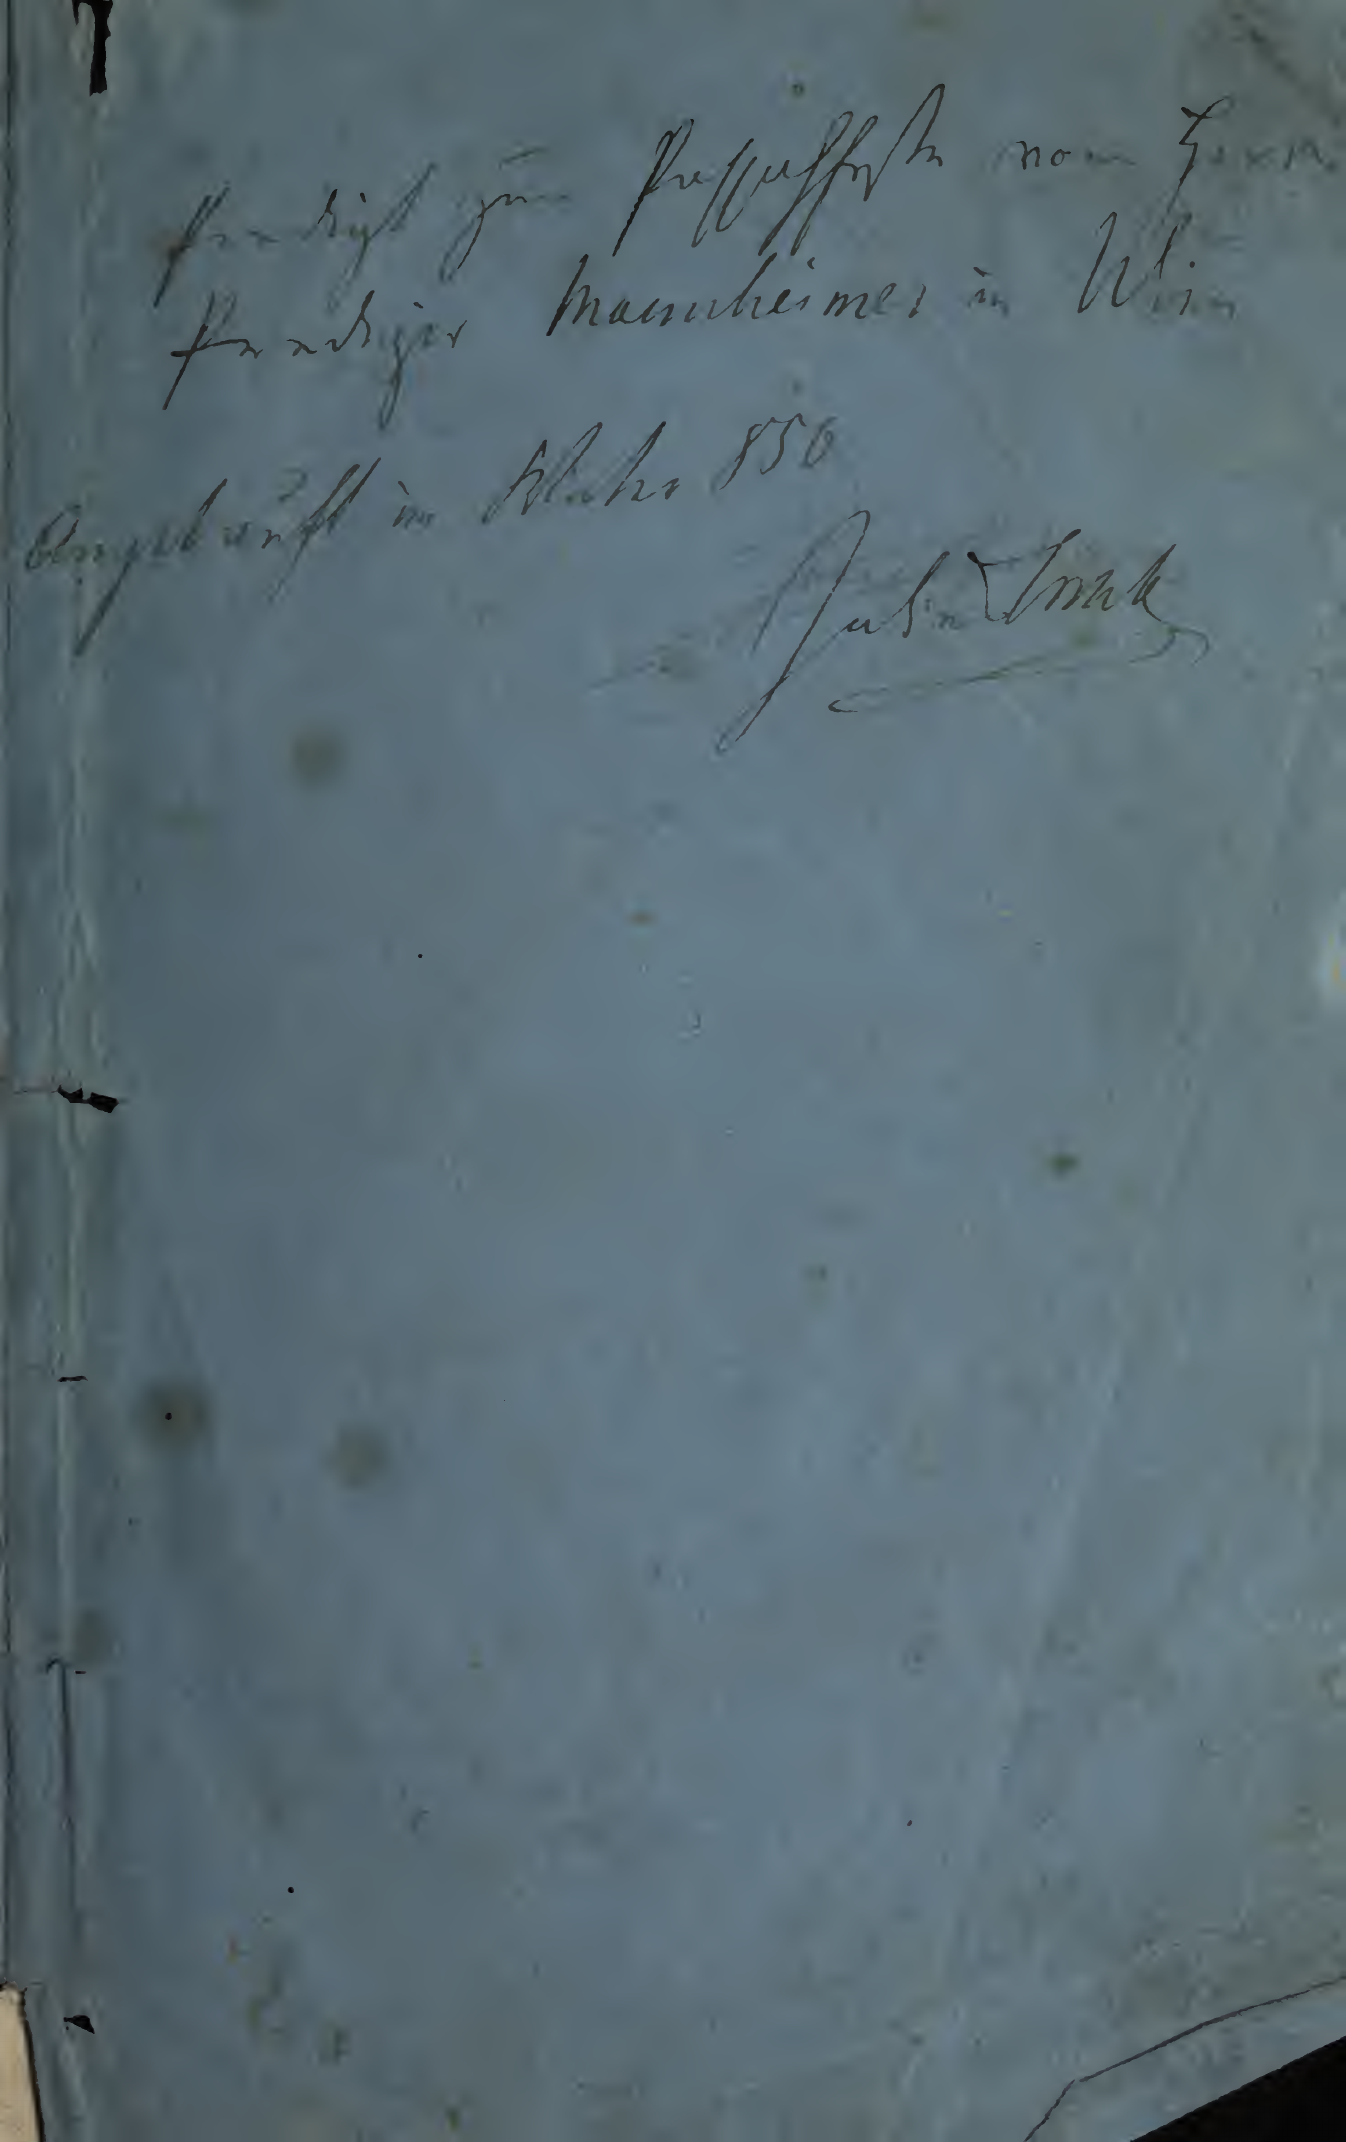 Predigt zum Pessachfeste vom Herrn
Prediger Mannheimer in Wien
Angekauft im Jahre 850